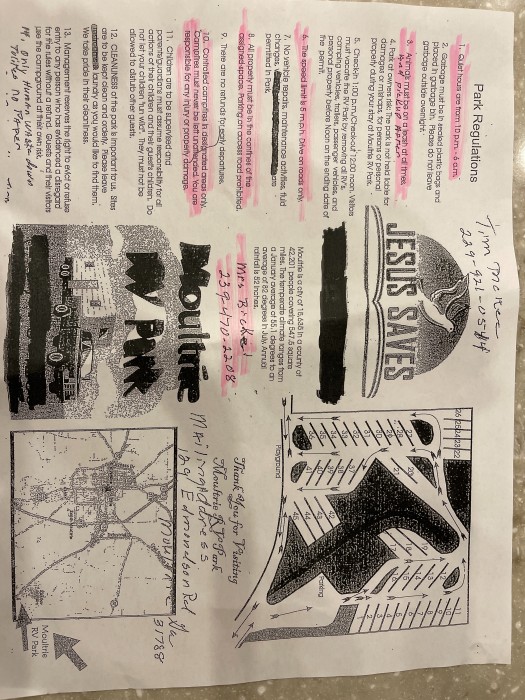 Park Regulations
1. Quiet hours are from 10 p.m. - 6 a.m.
2. Garbage must be in sealed plastic bags and
placed in garbage bin. Please do not leave
garbage outside overnight.
3. Animals must be on a leash at all times.
must pickup after
4. Park at owners risk. The Park is not held liable for
damage or mishaps, for autos, RV's or personal
property during your stay at Moultrie RV Park.
5. Check-in 1:00 p.m./Check-out 12:00 noon. Visitors
must vacate the RV Park by removing all RV's,
camping vehicles, trailers, passenger vehicles, and
personal property before Noon on the ending date of
the permit.
6. The speed limit is 5 m.p.h. Drive on roads only.
7. No vehicle repairs, maintenance activities, fluid
changes, are
permitted in Park.
8. All property must be in the confines of the
assigned spaces. Parking on access road prohibited.
9. There are no refunds for early departures.
10. Controlled campfires in designated areas only.
Campfires must not be left unattended. You are
responsible for any injury or property damage.
11. Children are to be supervised and
parents/guardians must assume responsibility for all
actions of their children and their guest's children. Do
not let your children play in the bathroom. They must not be
allowed to disturb other guests.
12. CLEANLINESS of the park is important to us. Sites
are to be kept clean and orderly. Please leave
laundry as you would like to find them.
We take pride in our cleanliness.
13. Management reserves the right to evict or refuse
entry to any person who has evidenced a disregard
for the rules without a refund. Guests and their visitors
use the campground at their own risk.
14. only Human waste and
Toilet Paper
229-921-0584
JESUS SAVES
Moultrie is a city of 15,635 in a county of
42,201 people covering 547.6 square
miles. The temperate climate ranges from
a January average of 55.1 degrees to an
average of 82 degrees in July. Annual
rainfall is 52 inches.
Mrs Bichel
239-470-2208
Moultrie
RV PARK
26 25 24 23 22
Playground
Parking
Thank You for Visiting
Moultrie RV Park
Mailing Address
29 Edmondson Rd
Moultrie Ga
31788
Moultrie
RV Park